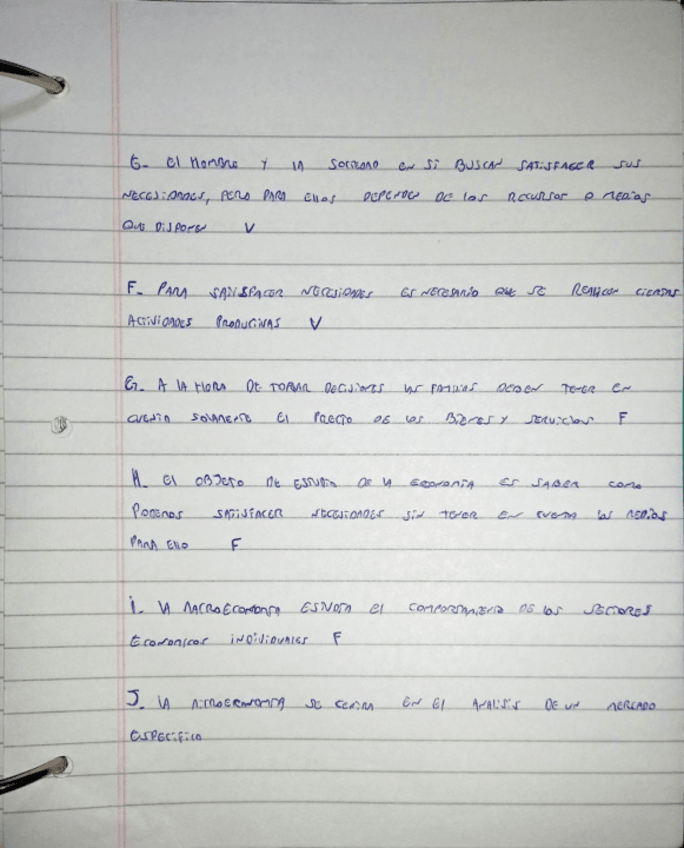 E- El HOMBRE Y LA SOCIEDAD EN SI BUSCAN SATISFACER SUS
NECESIDADES, PERO PARA ELLOS DEPENDEN DE LOS RECURSOS O MEDIOS
QUE DISPONEN V
F- PARA SATISFACER NECESIDADES ES NECESARIO QUE SE REALICEN CIERTAS
ACTIVIDADES PRODUCTIVAS V
G- A LA HORA DE TOMAR DECISIONES LAS FAMILIAS DEBEN TENER EN
CUENTA SOLAMENTE El PRECIO DE LOS BIENES Y SERVICIOS F
H- El OBJETO DE ESTUDIO DE LA ECONOMIA ES SABER COMO
PODEMOS SATISFACER NECESIDADES SIN TENER EN CUENTA LOS MEDIOS
PARA ELLO F
i- LA MACROECONOMIA ESTUDIA El COMPORTAMIENTO DE LOS SECTORES
ECONOMICOS INDIVIDUALES F
J- LA MICROECONOMIA SE CENTRA EN El ANALISIS DE UN MERCADO
ESPECIFICO